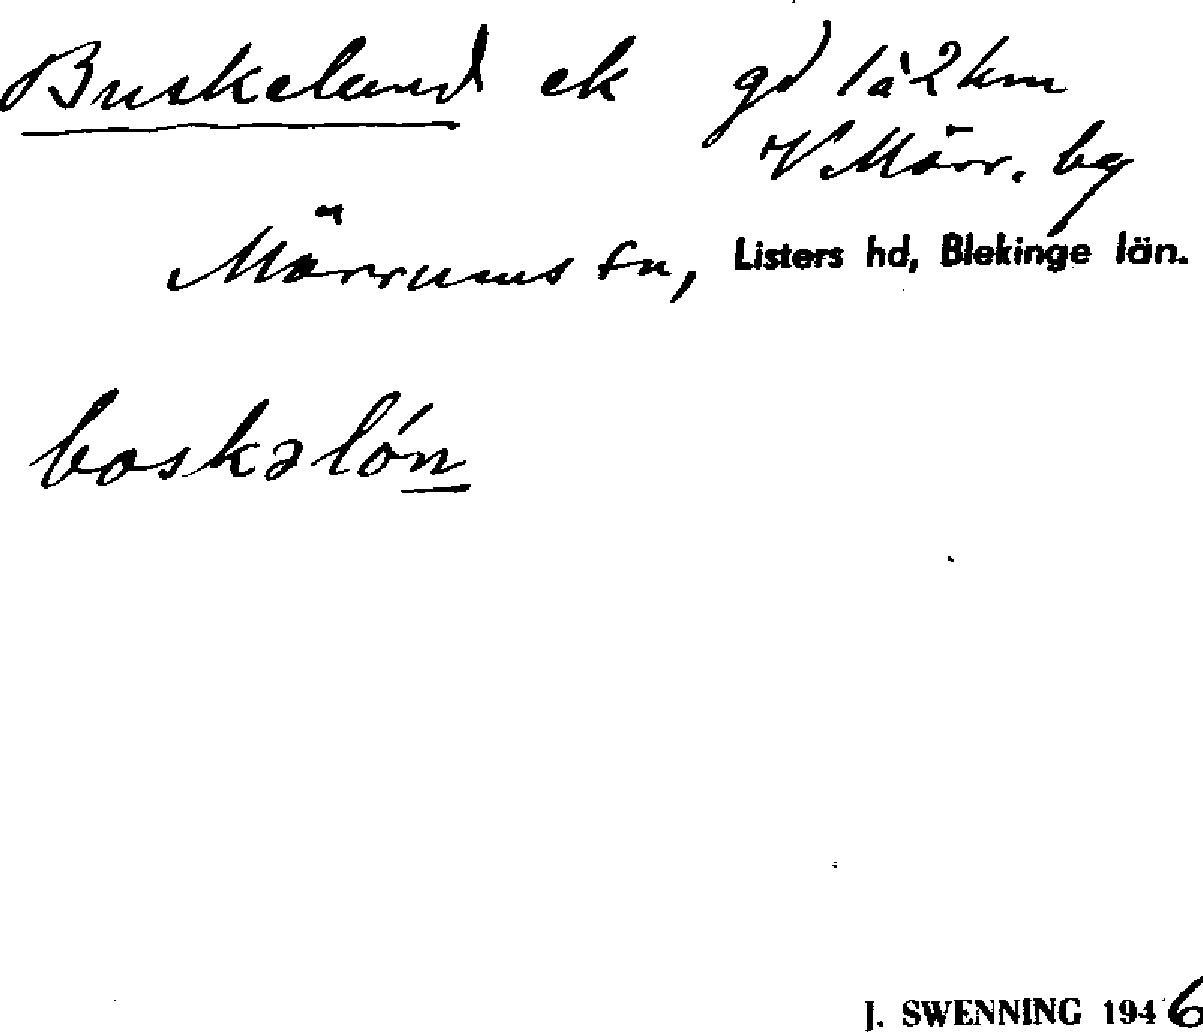 Buskeland ek gd 1 à 2 km
V Mörr. by
Mörrums sn, Listers hd, Blekinge län.
boskəlón
J. SWENNING 1946